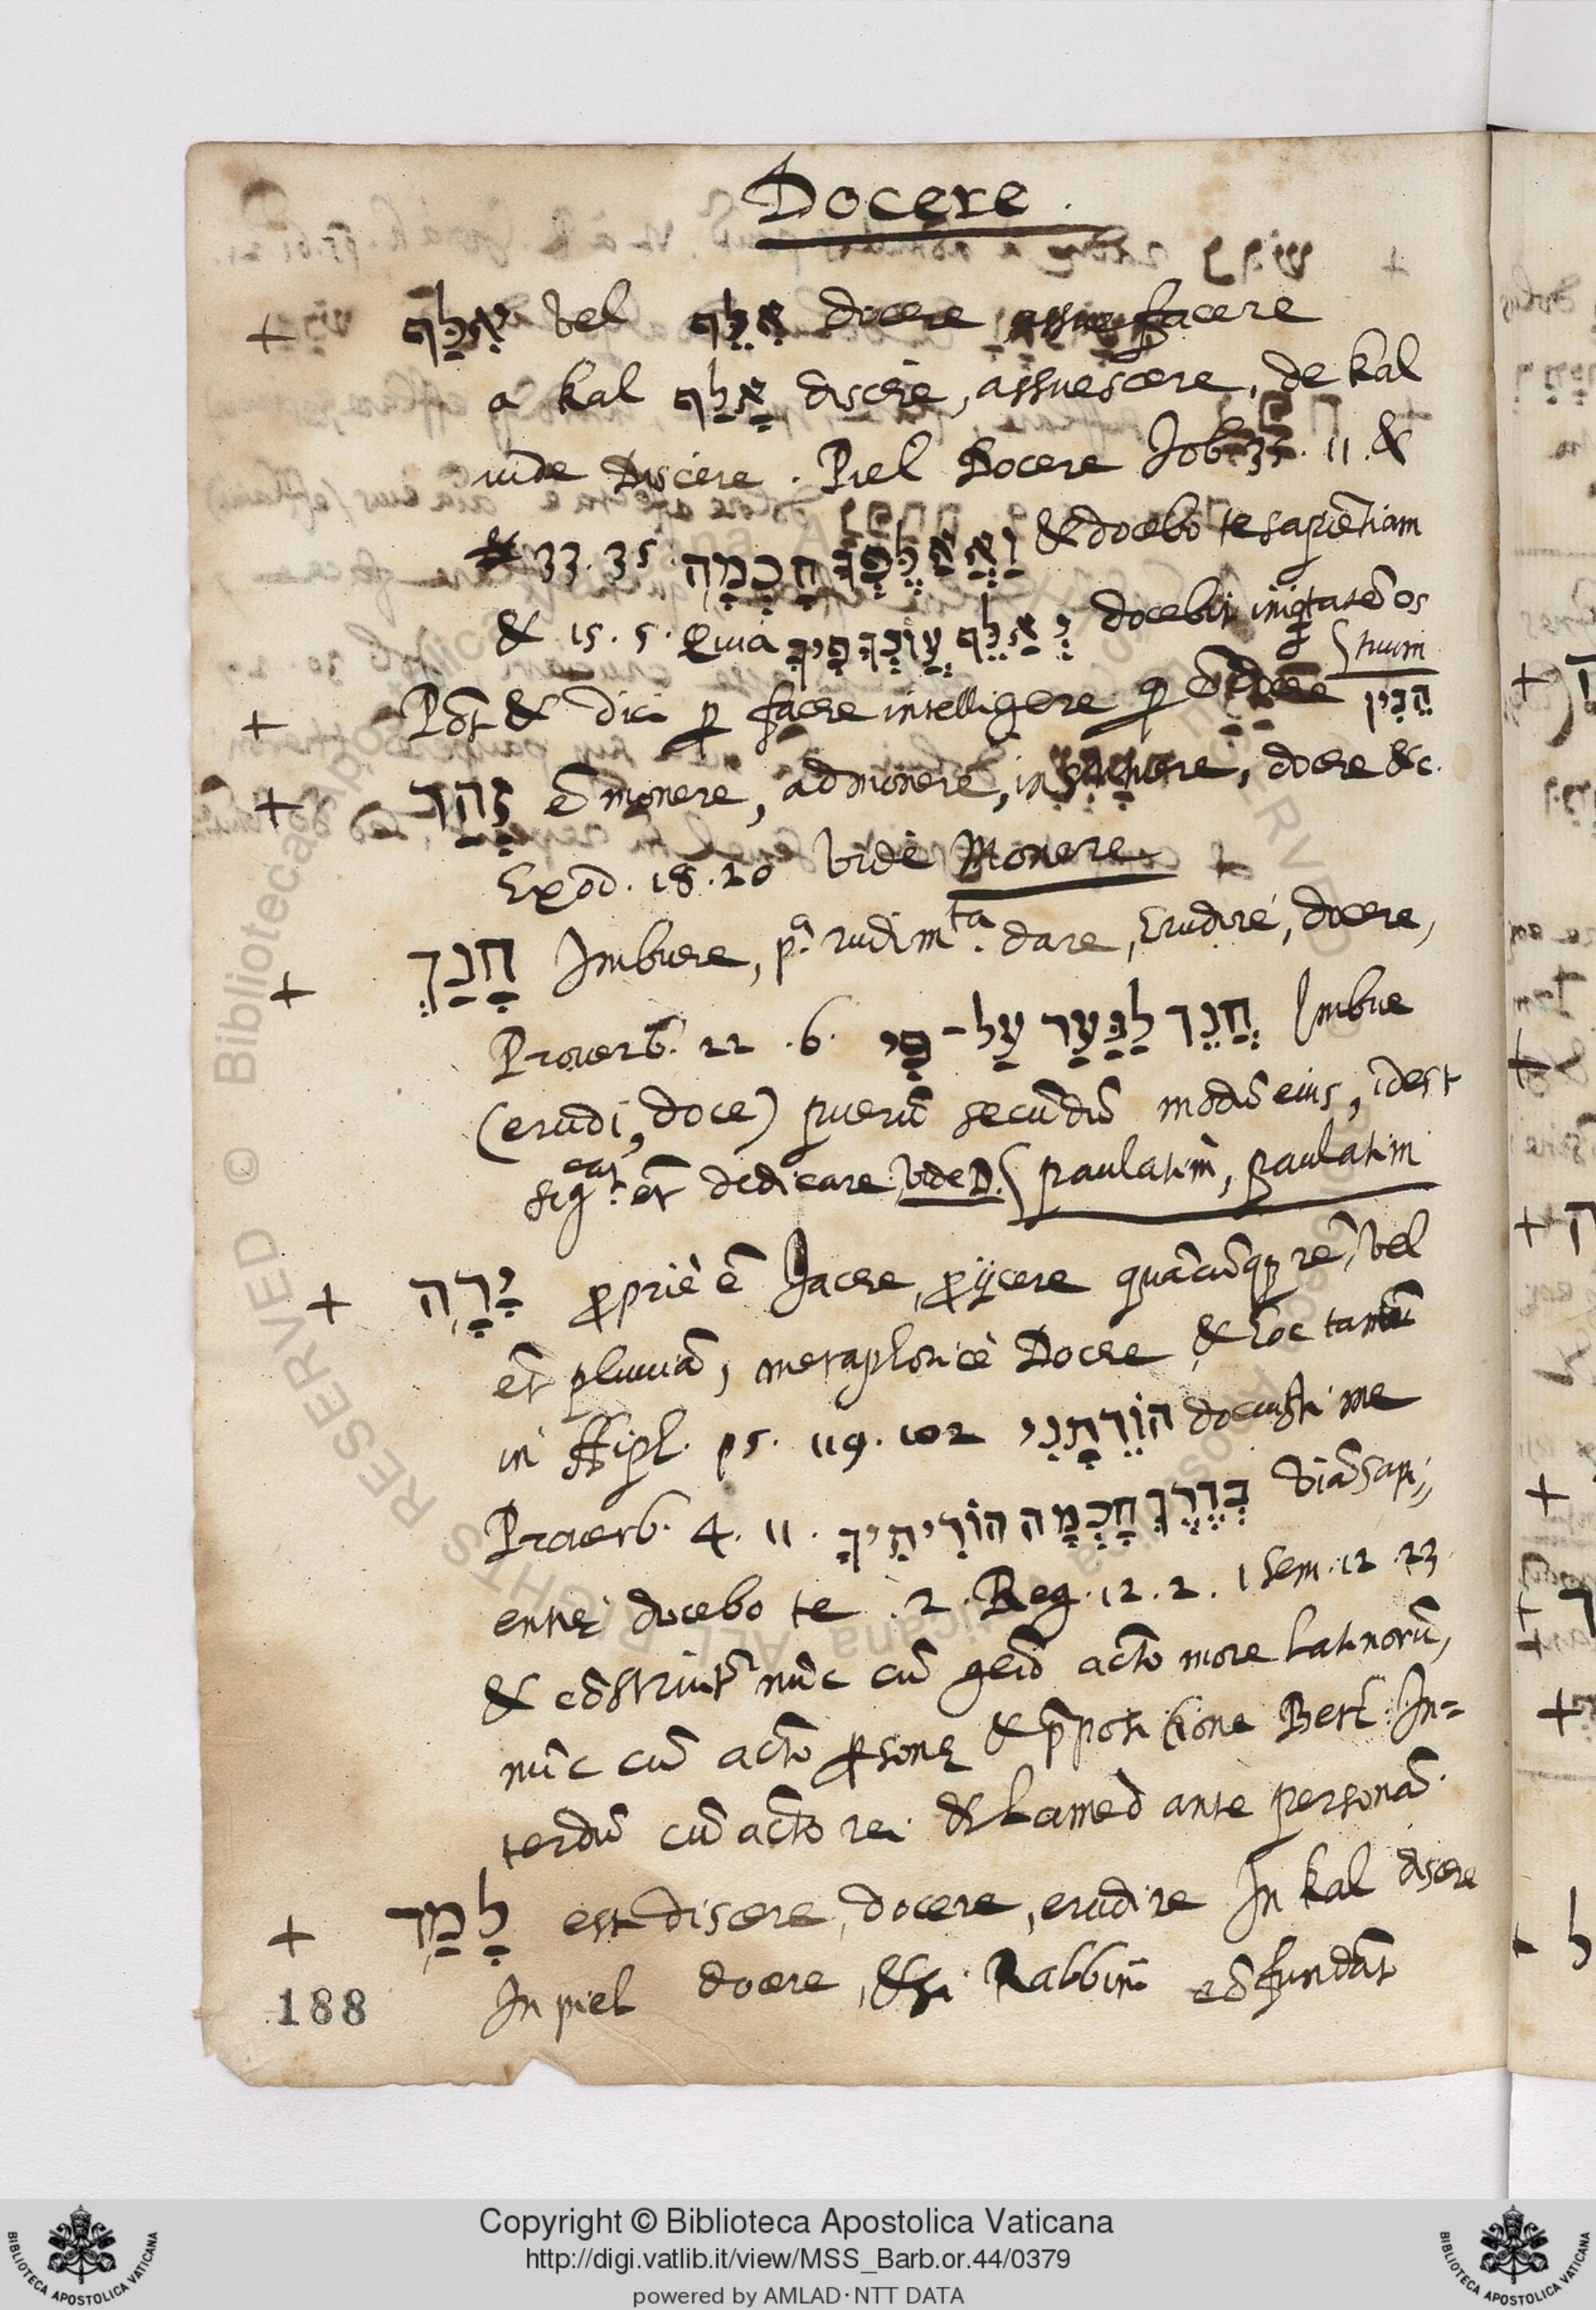 Docere.
+ אִלַּף vel אִלֵּף docere assuefacere
a kal אָלַף discere, assuescere, de kal
uide Discere. Piel Docere Job. 35. 11. &
& 33. 35. וַאֲאַלֶּפְךָ חָכְמָה & docebo te sapiẽtiam
& 15. 5. Quia יְאַלֵּף עֲוֹנְךָ פִּיךָ docebit iniq̃tatẽ os
tuum
+ Põt & dici p facere intelligere הֵבִין
+ זָהַר ẽ monere, admonere, instruere, docere &c.
Exod. 18. 20 vide Monere
+ חָנַךְ Imbuere, pª. rudimᵗᵃ. dare, Erudire, docere,
Prouerb. 22. 6. חֲנֹךְ לַנַּעַר עַל־פִּי Imbue
(erudi, doce) puerũ secũdũ modũ eius, idest
paulatim, paulatim
sigᶜᵃᵗ. ẽt dedicare vide D.
+ יָרָה ꝓpriè ẽ Jacere, ꝓijcere quãcũq; rẽ, vel
ẽt pluuiã, metaphoricè Docere & hoc tantũ
in Hipl. ps. 119. 102 הוֹרֵתָנִי docuisti me
Prouerb. 4. 11. בְּדֶרֶךְ חָכְמָה הוֹרֵיתִיךָ viã sapi=
entię docebo te. 2. Reg. 12. 2. 1 Sem. 12. 23.
& cõstruitʳ nũc cũ gẽio acto more Latinorũ,
nũc cũ acto ꝑsonę & p̃positione Beth. In=
terdũ cũ acto rei & Lamed ante personã.
+ לָמַד est discere, docere, erudire In kal discere
In piel docere, & si Rabbini cõfundãt
188
Copyright © Biblioteca Apostolica Vaticana
http://digi.vatlib.it/view/MSS_Barb.or.44/0379
powered by AMLAD·NTT DATA